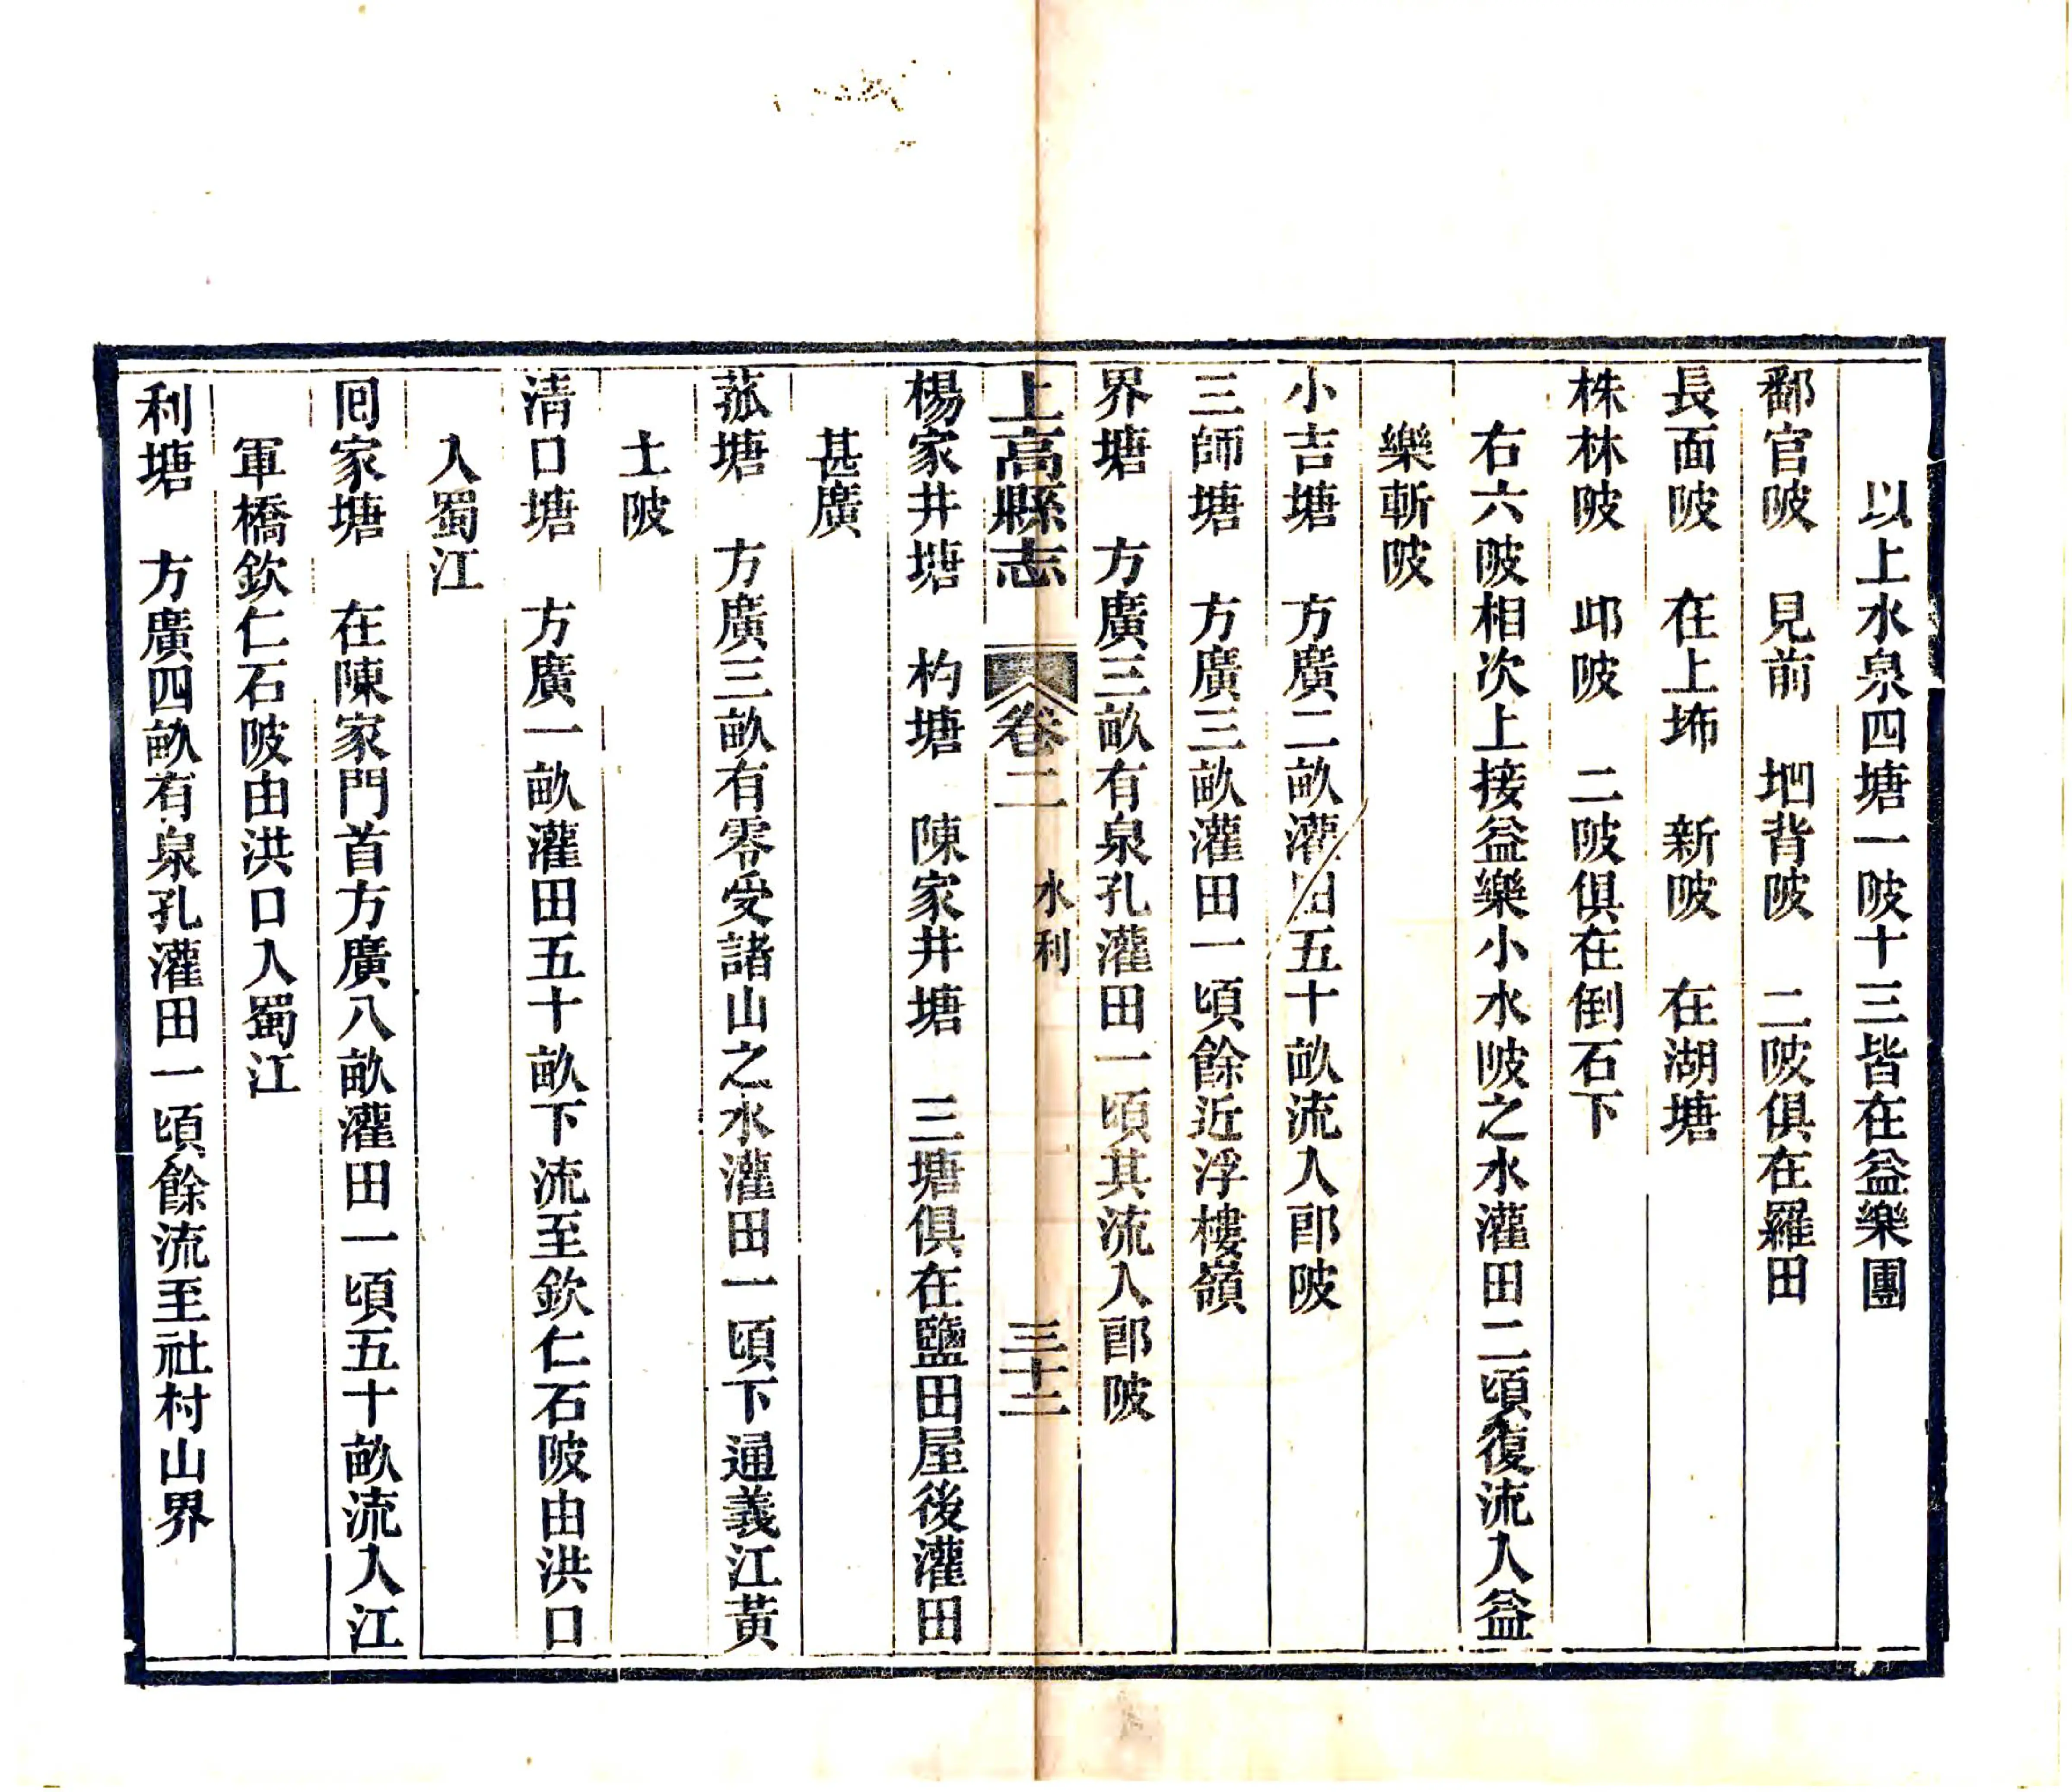 以上水泉四塘一陂十三皆在益樂團
鄱官陂　見前　垇背陂　二陂俱在羅田
長面陂　在上㘵　新陂　在湖塘
株林陂　邖陂　二陂俱在倒石下
右六陂相次上接益樂小水陂之水灌田二頃復流入益
樂斬陂
小吉塘　方廣二畝灌田五十畝流入郎陂
三師塘　方廣三畝灌田一頃餘近浮樓嶺
界塘　方廣三畝有泉孔灌田一頃其流入郎陂
上高縣志　卷二　水利　三十二
楊家井塘　杓塘　陳家井塘　三塘俱在鹽田屋後灌田
甚廣
菰塘　方廣三畝有零受諸山之水灌田一頃下通義江黃
土陂
清口塘　方廣一畝灌田五十畝下流至欽仁石陂由洪口
入蜀江
囘家塘　在陳家門首方廣八畝灌田一頃五十畝流入江
軍橋欽仁石陂由洪口入蜀江
利塘　方廣四畝有泉孔灌田一頃餘流至社村山界